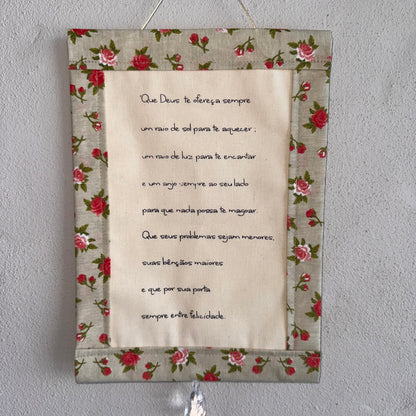 Que Deus te ofereça sempre
um raio de sol para te aquecer;
um raio de luz para te encantar
e um anjo sempre ao seu lado
para que nada possa te magoar.
Que seus problemas sejam menores,
suas bênçãos maiores
e que por sua porta
sempre entre felicidade.